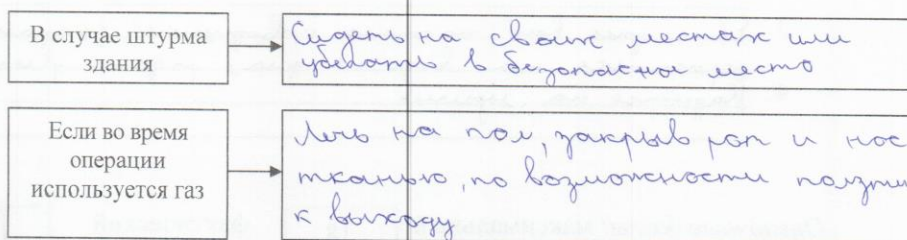 В случае штурма
здания
Сидеть на своих местах или
убегать в безопасное место
Если во время
операции
используется газ
Лечь на пол, закрыв рот и нос
тканью, по возможности ползти
к выходу